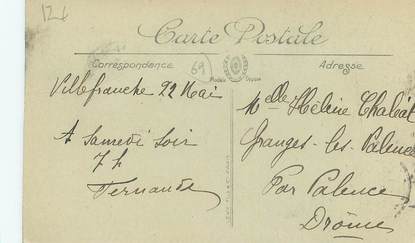 124
Carte Postale
Correspondance
69
Adresse
Villefranche 22 Mai
A Samedi soir
7h
Fernande
Melle Hélène Chabert
Granges-les-Valence
Par Valence
Drôme